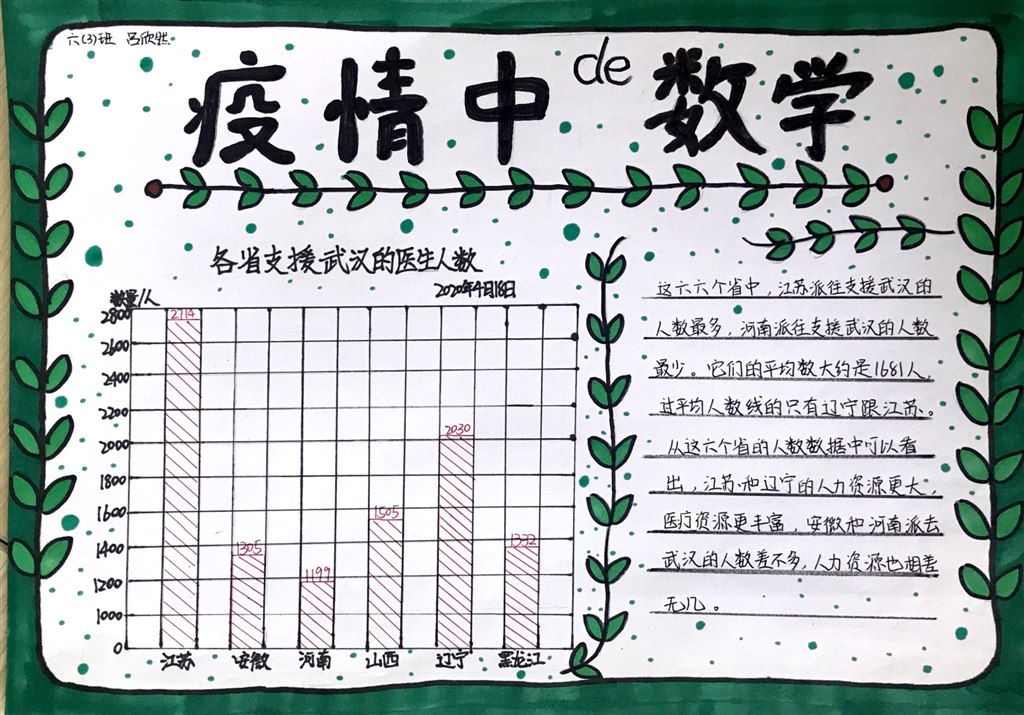 六(3)班 吕欣然
疫情中de数学
各省支援武汉的医生人数
2020年4月18日
数量/人
2800
2600
2400
2200
2000
1800
1600
1400
1200
1000
0
2714
1305
1199
1505
2030
1332
江苏 安徽 河南 山西 辽宁 黑龙江
这六六个省中，江苏派往支援武汉的
人数最多，河南派往支援武汉的人数
最少。它们的平均数大约是1681人，
过平均人数线的只有辽宁跟江苏。
从这六个省的人数数据中可以看
出，江苏和辽宁的人力资源更大，
医疗资源更丰富，安徽和河南派去
武汉的人数差不多，人力资源也相差
无几。